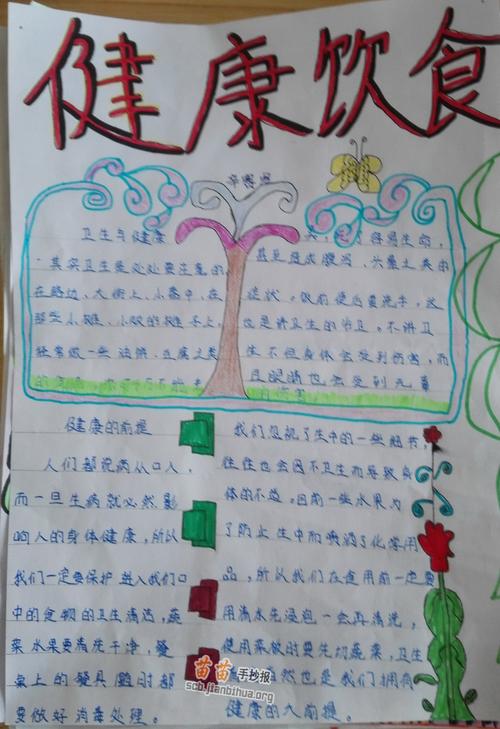 健康饮食
卫生与健康
其实卫生是必处要注意的
在路边,大街上,小巷中,在
那些小摊,小贩的摊子上,
经常做一些油饼、豆腐之类
容易生病,
甚至造成腹泻、六集之类的
症状。饭前便后要洗手,这
也是讲卫生的守卫。不讲卫
生不但身体会受到伤害,而
且眼睛也会受到无辜
的伤害。
健康的前提
人们都说病从口入,
而一旦生病就必然影
响人的身体健康,所以
我们一定要保护进入我们口
中的食物的卫生清洁,蔬
菜水果要清洗干净,餐
桌上的餐具随时都
要做好消毒处理。
我们忽视了生中的一些细节,
往往也会因不卫生而导致身
体的不适。因前一些水果为
了防止生中而喷洒了化学用
品,所以我们在食用前一定要
用清水先浸泡一会再清洗,
使用菜板时要先切蔬菜,卫生
自然也是我们拥有
健康的大前提。
苗苗手抄报
scb.jianbihua.org